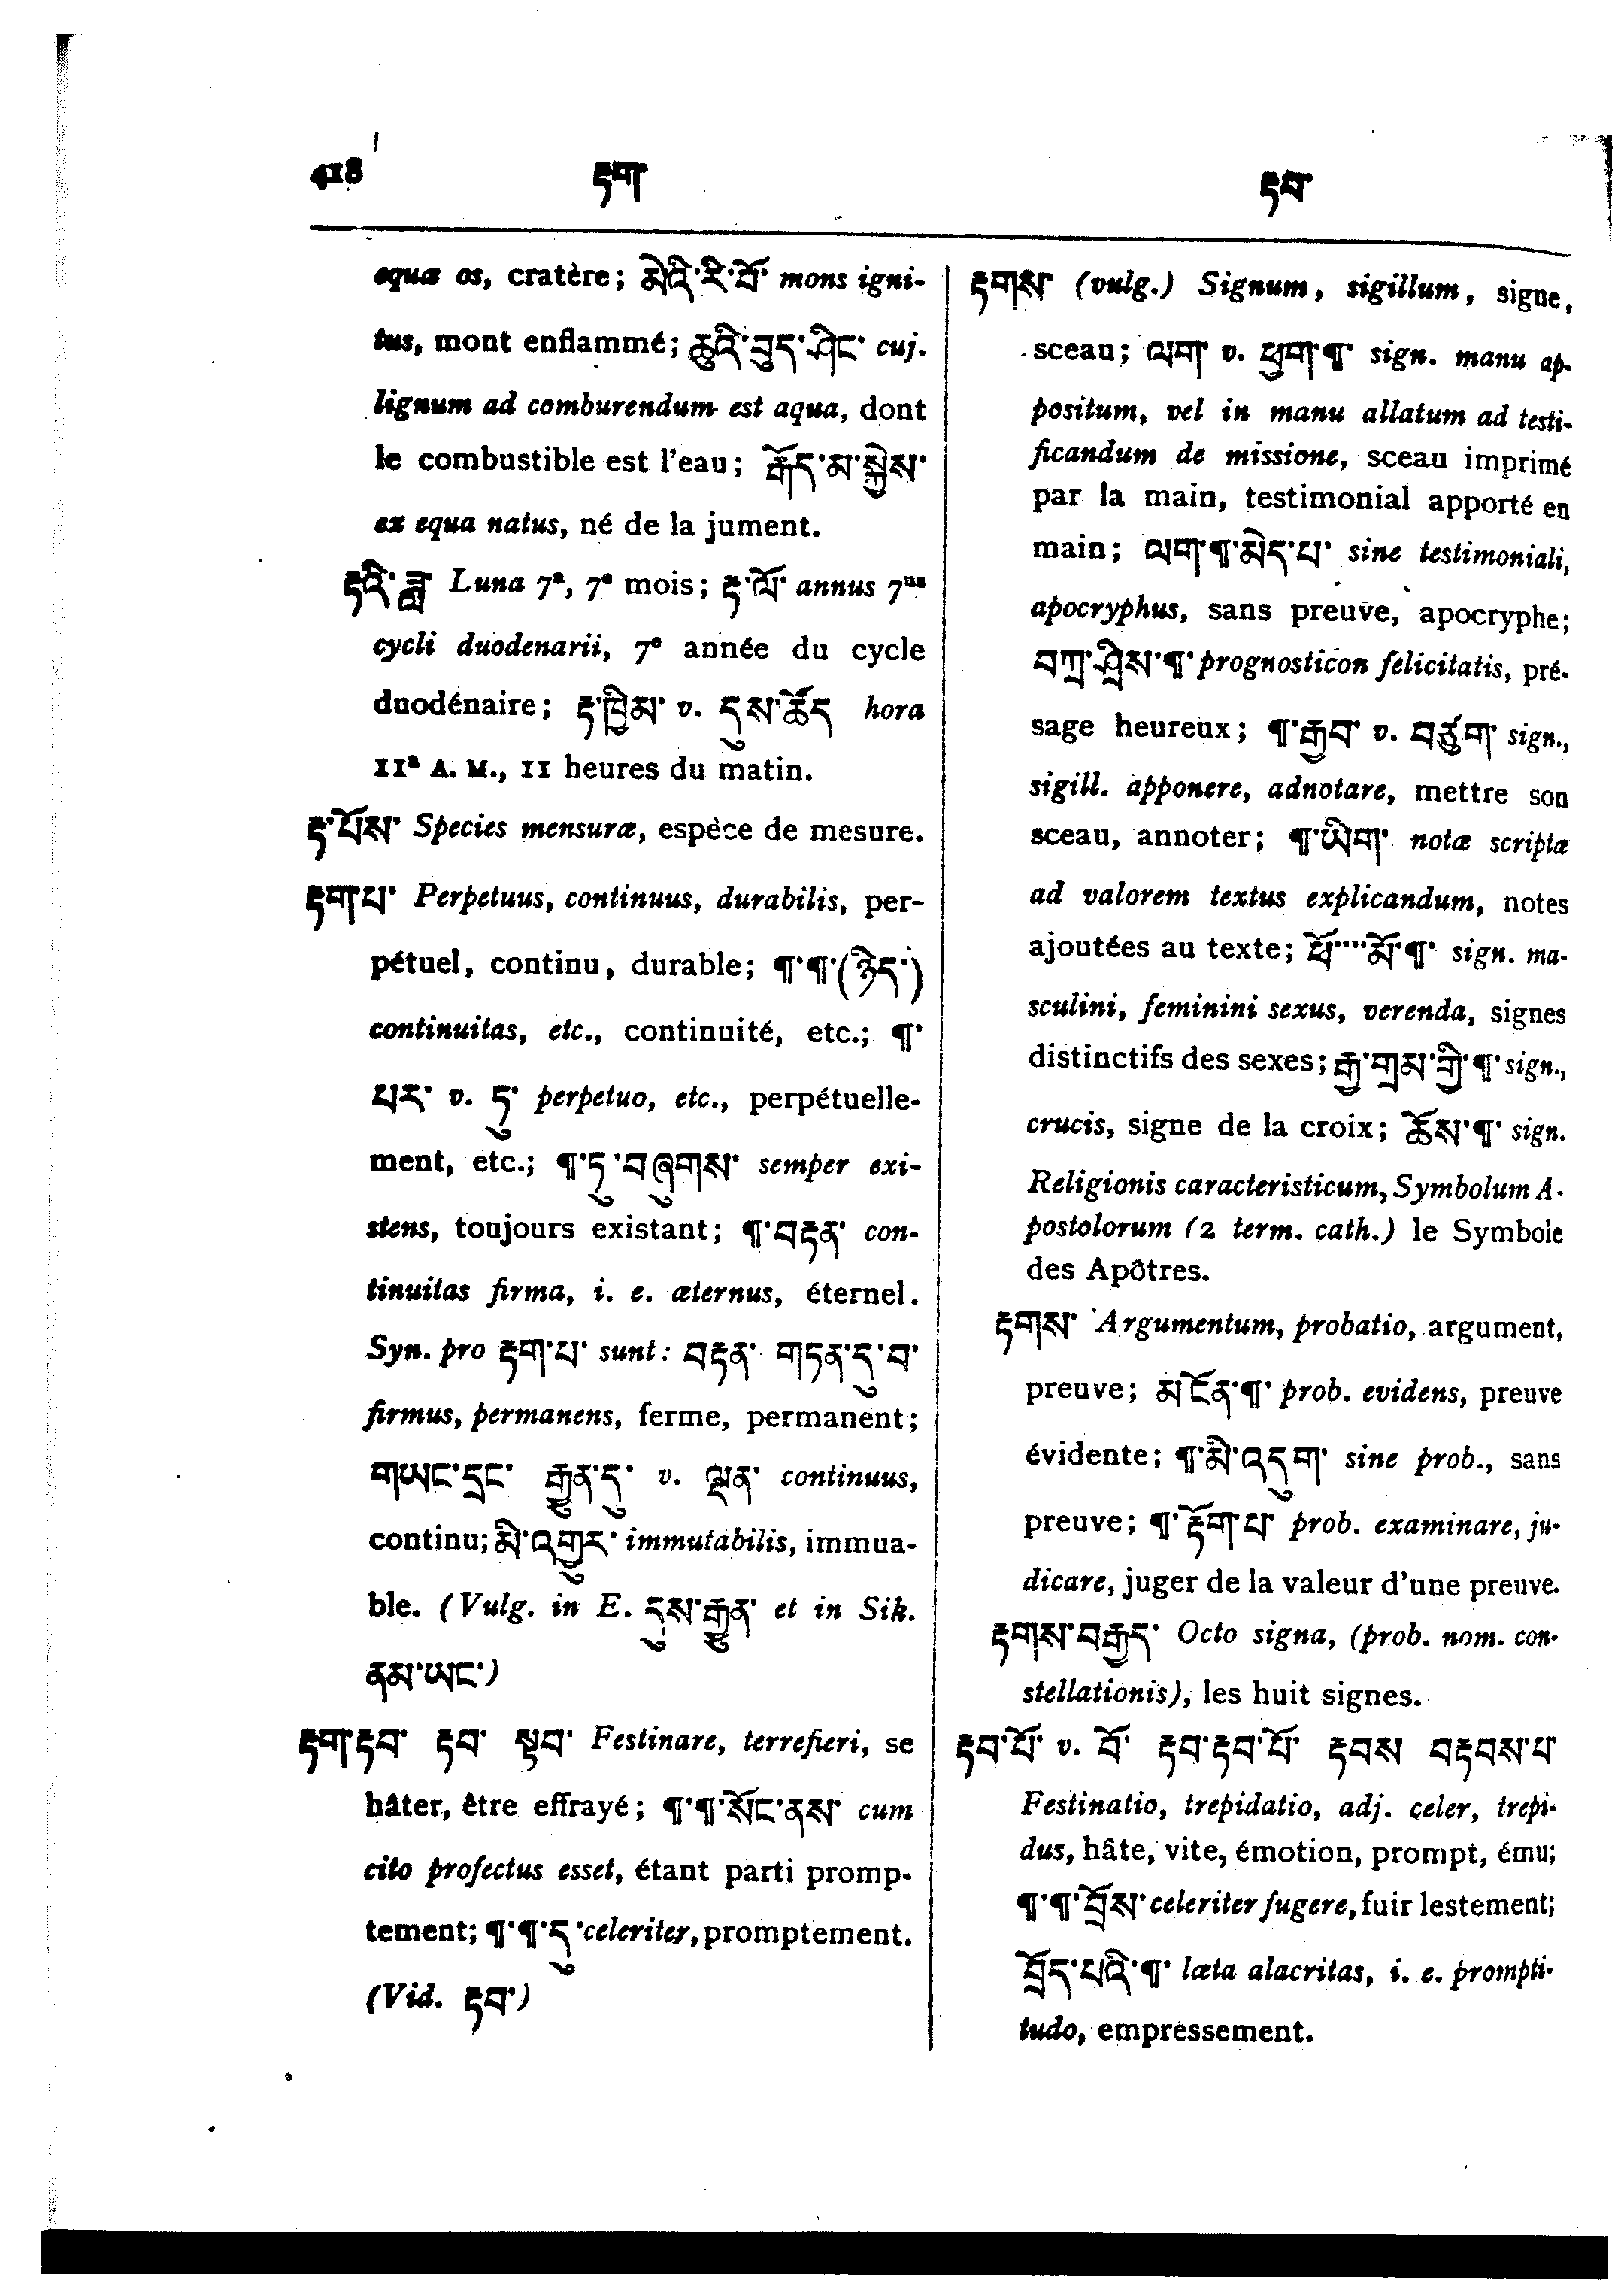 418
རྟག
རྟབ
equæ os, cratère; མེའི་རི་བོ་ mons igni-
tus, mont enflammé; ཆུའི་བུད་ཤིང་ cuj.
lignum ad comburendum est aqua, dont
le combustible est l'eau; རྒོད་མ་སྐྱེས་
ex equa natus, né de la jument.
རྟའི་ཟླ་ Luna 7ª, 7ᵉ mois; རྟ་ལོ་ annus 7ᵘˢ
cycli duodenarii, 7ᵉ année du cycle
duodénaire; རྟ་ཁྱིམ་ v. དུས་ཚོད hora
11ª A. M., 11 heures du matin.
རྟ་པོས་ Species mensuræ, espèce de mesure.
རྟག་པ་ Perpetuus, continuus, durabilis, per-
pétuel, continu, durable; ¶་¶་(ཉིད་)
continuitas, etc., continuité, etc.; ¶་
པར་ v. ཏུ་ perpetuo, etc., perpétuelle-
ment, etc.; ¶་ཏུ་བཞུགས་ semper exi-
stens, toujours existant; ¶་བརྟན་ con-
tinuitas firma, i. e. æternus, éternel.
Syn. pro རྟག་པ་ sunt: བརྟན་ གཏན་དུ་བ་
firmus, permanens, ferme, permanent;
གཡང་དྲང་ རྒྱུན་དུ་ v. ལྡན་ continuus,
continu; མི་འགྱུར་ immutabilis, immua-
ble. (Vulg. in E. དུས་རྒྱུན་ et in Sik.
ནམ་ཡང་)
རྟག་རྟབ་ རྟབ་ སྟབ་ Festinare, terrefieri, se
hâter, être effrayé; ¶་¶་སོང་ནས་ cum
cito profectus esset, étant parti promp-
tement; ¶་¶་དུ་ celeriter, promptement.
(Vid. རྟབ་)
རྟགས་ (vulg.) Signum, sigillum, signe,
sceau; ལག་ v. ཕྱག་¶་ sign. manu ap-
positum, vel in manu allatum ad testi-
ficandum de missione, sceau imprimé
par la main, testimonial apporté en
main; ལག་¶་མེད་པ་ sine testimoniali,
apocryphus, sans preuve, apocryphe;
བཀྲ་ཤིས་¶་ prognosticon felicitatis, pré-
sage heureux; ¶་རྒྱབ་ v. བཙུག་ sign.,
sigill. apponere, adnotare, mettre son
sceau, annoter; ¶་ཡིག་ notæ scriptæ
ad valorem textus explicandum, notes
ajoutées au texte; ཕོ་····མོ་¶་ sign. ma-
sculini, feminini sexus, verenda, signes
distinctifs des sexes; རྒྱ་གྲམ་གྱི་¶་ sign.,
crucis, signe de la croix; ཆོས་¶་ sign.
Religionis caracteristicum, Symbolum A-
postolorum (2 term. cath.) le Symbole
des Apôtres.
རྟགས་ Argumentum, probatio, argument,
preuve; མངོན་¶་ prob. evidens, preuve
évidente; ¶་མི་འདུག་ sine prob., sans
preuve; ¶་རྟོག་པ་ prob. examinare, ju-
dicare, juger de la valeur d'une preuve.
རྟགས་བརྒྱད་ Octo signa, (prob. nom. con-
stellationis), les huit signes.
རྟབ་པོ་ v. བོ་ རྟབ་རྟབ་པོ་ རྟབས བརྟབས་པ
Festinatio, trepidatio, adj. celer, trepi-
dus, hâte, vite, émotion, prompt, ému;
¶་¶་བྲོས་ celeriter fugere, fuir lestement;
བྲོད་པའི་¶་ læta alacritas, i. e. prompti-
tudo, empressement.